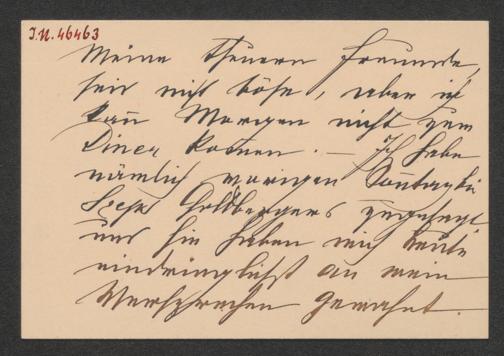 I.N. 46463
Meine theuern Freunde,
seid nicht böse, aber ich
kann Morgen nicht zum
Diner kommen. — Ich habe
nämlich vorigen Sonntag bei
Goldbergers zugesagt
und sie haben mich heute
eindringlichst an mein
Versprechen gemahnt.